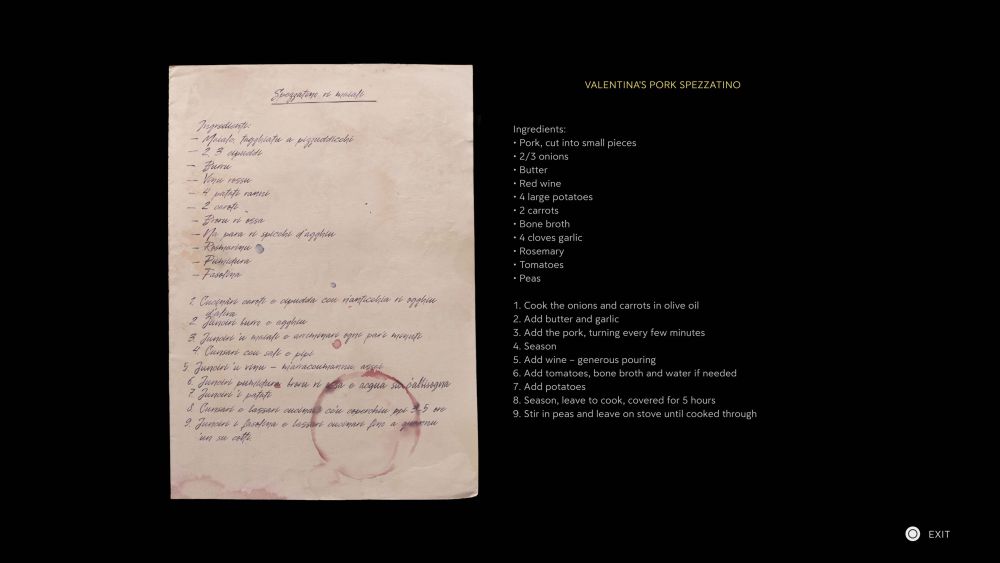 Spezzatino ri maiali
Ingredienti:
– Maiale, tagghiatu a pizzuddicchi
– 2, 3 cipuddi
– Burru
– Vinu russu
– 4 patati ranni
– 2 caroti
– Broru ri ossa
– Na para ri spicchi d'agghiu
– Rosmarinu
– Pumidura
– Fasolina
1. Cucinari caroti e cipudda con n'anticchia ri ogghiu
d'aliva
2. Junciri burro e agghiu
3. Junciri 'u maiali e arriminari ogni pari minuti
4. Cunsari cou sali e pipi
5. Junciri 'u vinu –
6. Junciri pumidura, broru ri ossa e acqua
7. Junciri 'i patati
8. Cunsari e lassari cucinari cou cuverchiu ppi 3-5 ore
9. Junciri i fasolina e lassari cucinari fino a quannu
'un su cotti.
VALENTINA'S PORK SPEZZATINO
Ingredients:
• Pork, cut into small pieces
• 2/3 onions
• Butter
• Red wine
• 4 large potatoes
• 2 carrots
• Bone broth
• 4 cloves garlic
• Rosemary
• Tomatoes
• Peas
1. Cook the onions and carrots in olive oil
2. Add butter and garlic
3. Add the pork, turning every few minutes
4. Season
5. Add wine – generous pouring
6. Add tomatoes, bone broth and water if needed
7. Add potatoes
8. Season, leave to cook, covered for 5 hours
9. Stir in peas and leave on stove until cooked through
EXIT